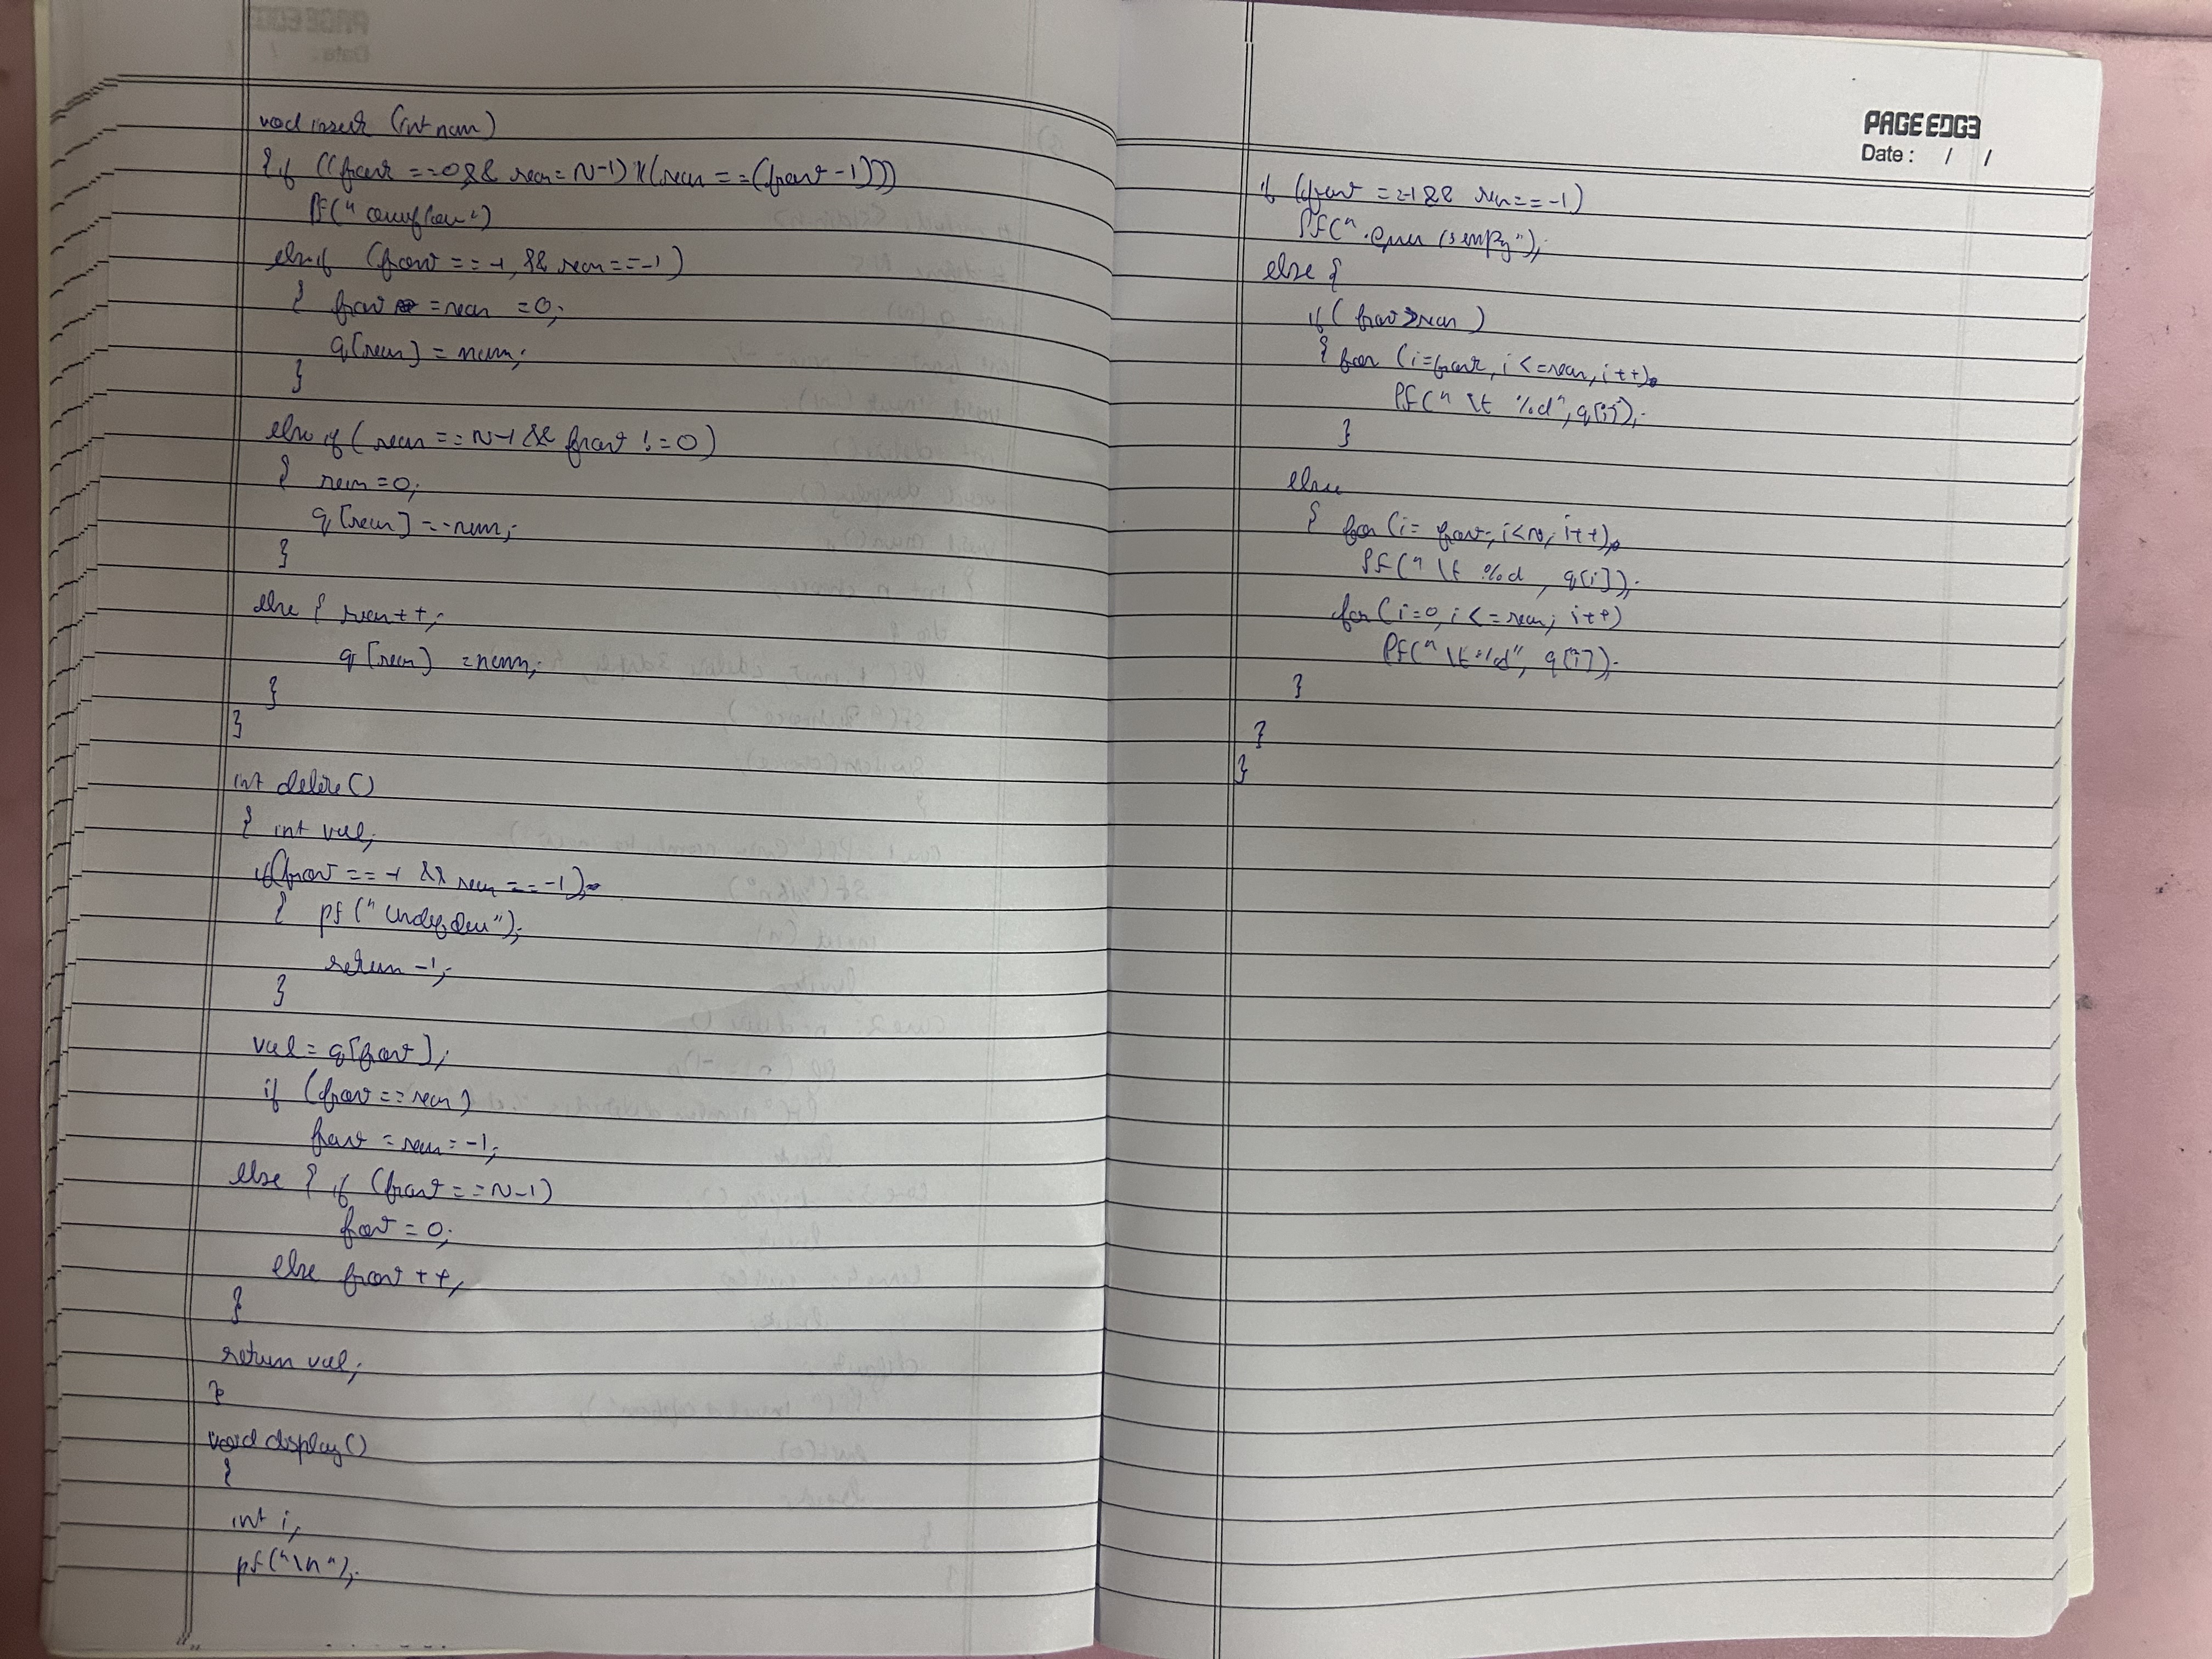 void insert (int num)
{ if ((front == 0 && rear = N-1) || (rear == (front -1)))
Pf(" overflow")
else if (front == -1 && rear == -1)
{ front = rear = 0;
q[rear] = num;
}
else if (rear == N-1 && front != 0)
{ rear = 0;
q[rear] = num;
}
else { rear++;
q[rear] = num;
}
}
int delete()
{ int val;
if(front == -1 && rear == -1)
{ pf("underflow");
return -1;
}
val = q[front];
if (front == rear)
front = rear = -1;
else { if (front == N-1)
front = 0;
else front ++;
}
return val;
}
void display()
{
int i;
pf("\n");
PAGE EDGE
Date : / /
if (front = = -1 && rear == -1)
Pf(" Queue is empty");
else {
if (front > rear)
{ for (i=front; i <= rear; i++)
Pf(" \t %d", q[i]);
}
else
{ for (i= front; i<N; i++)
Pf(" \t %d, q[i]);
for (i=0; i <= rear; i++)
Pf(" \t %d", q[i]);
}
}
}